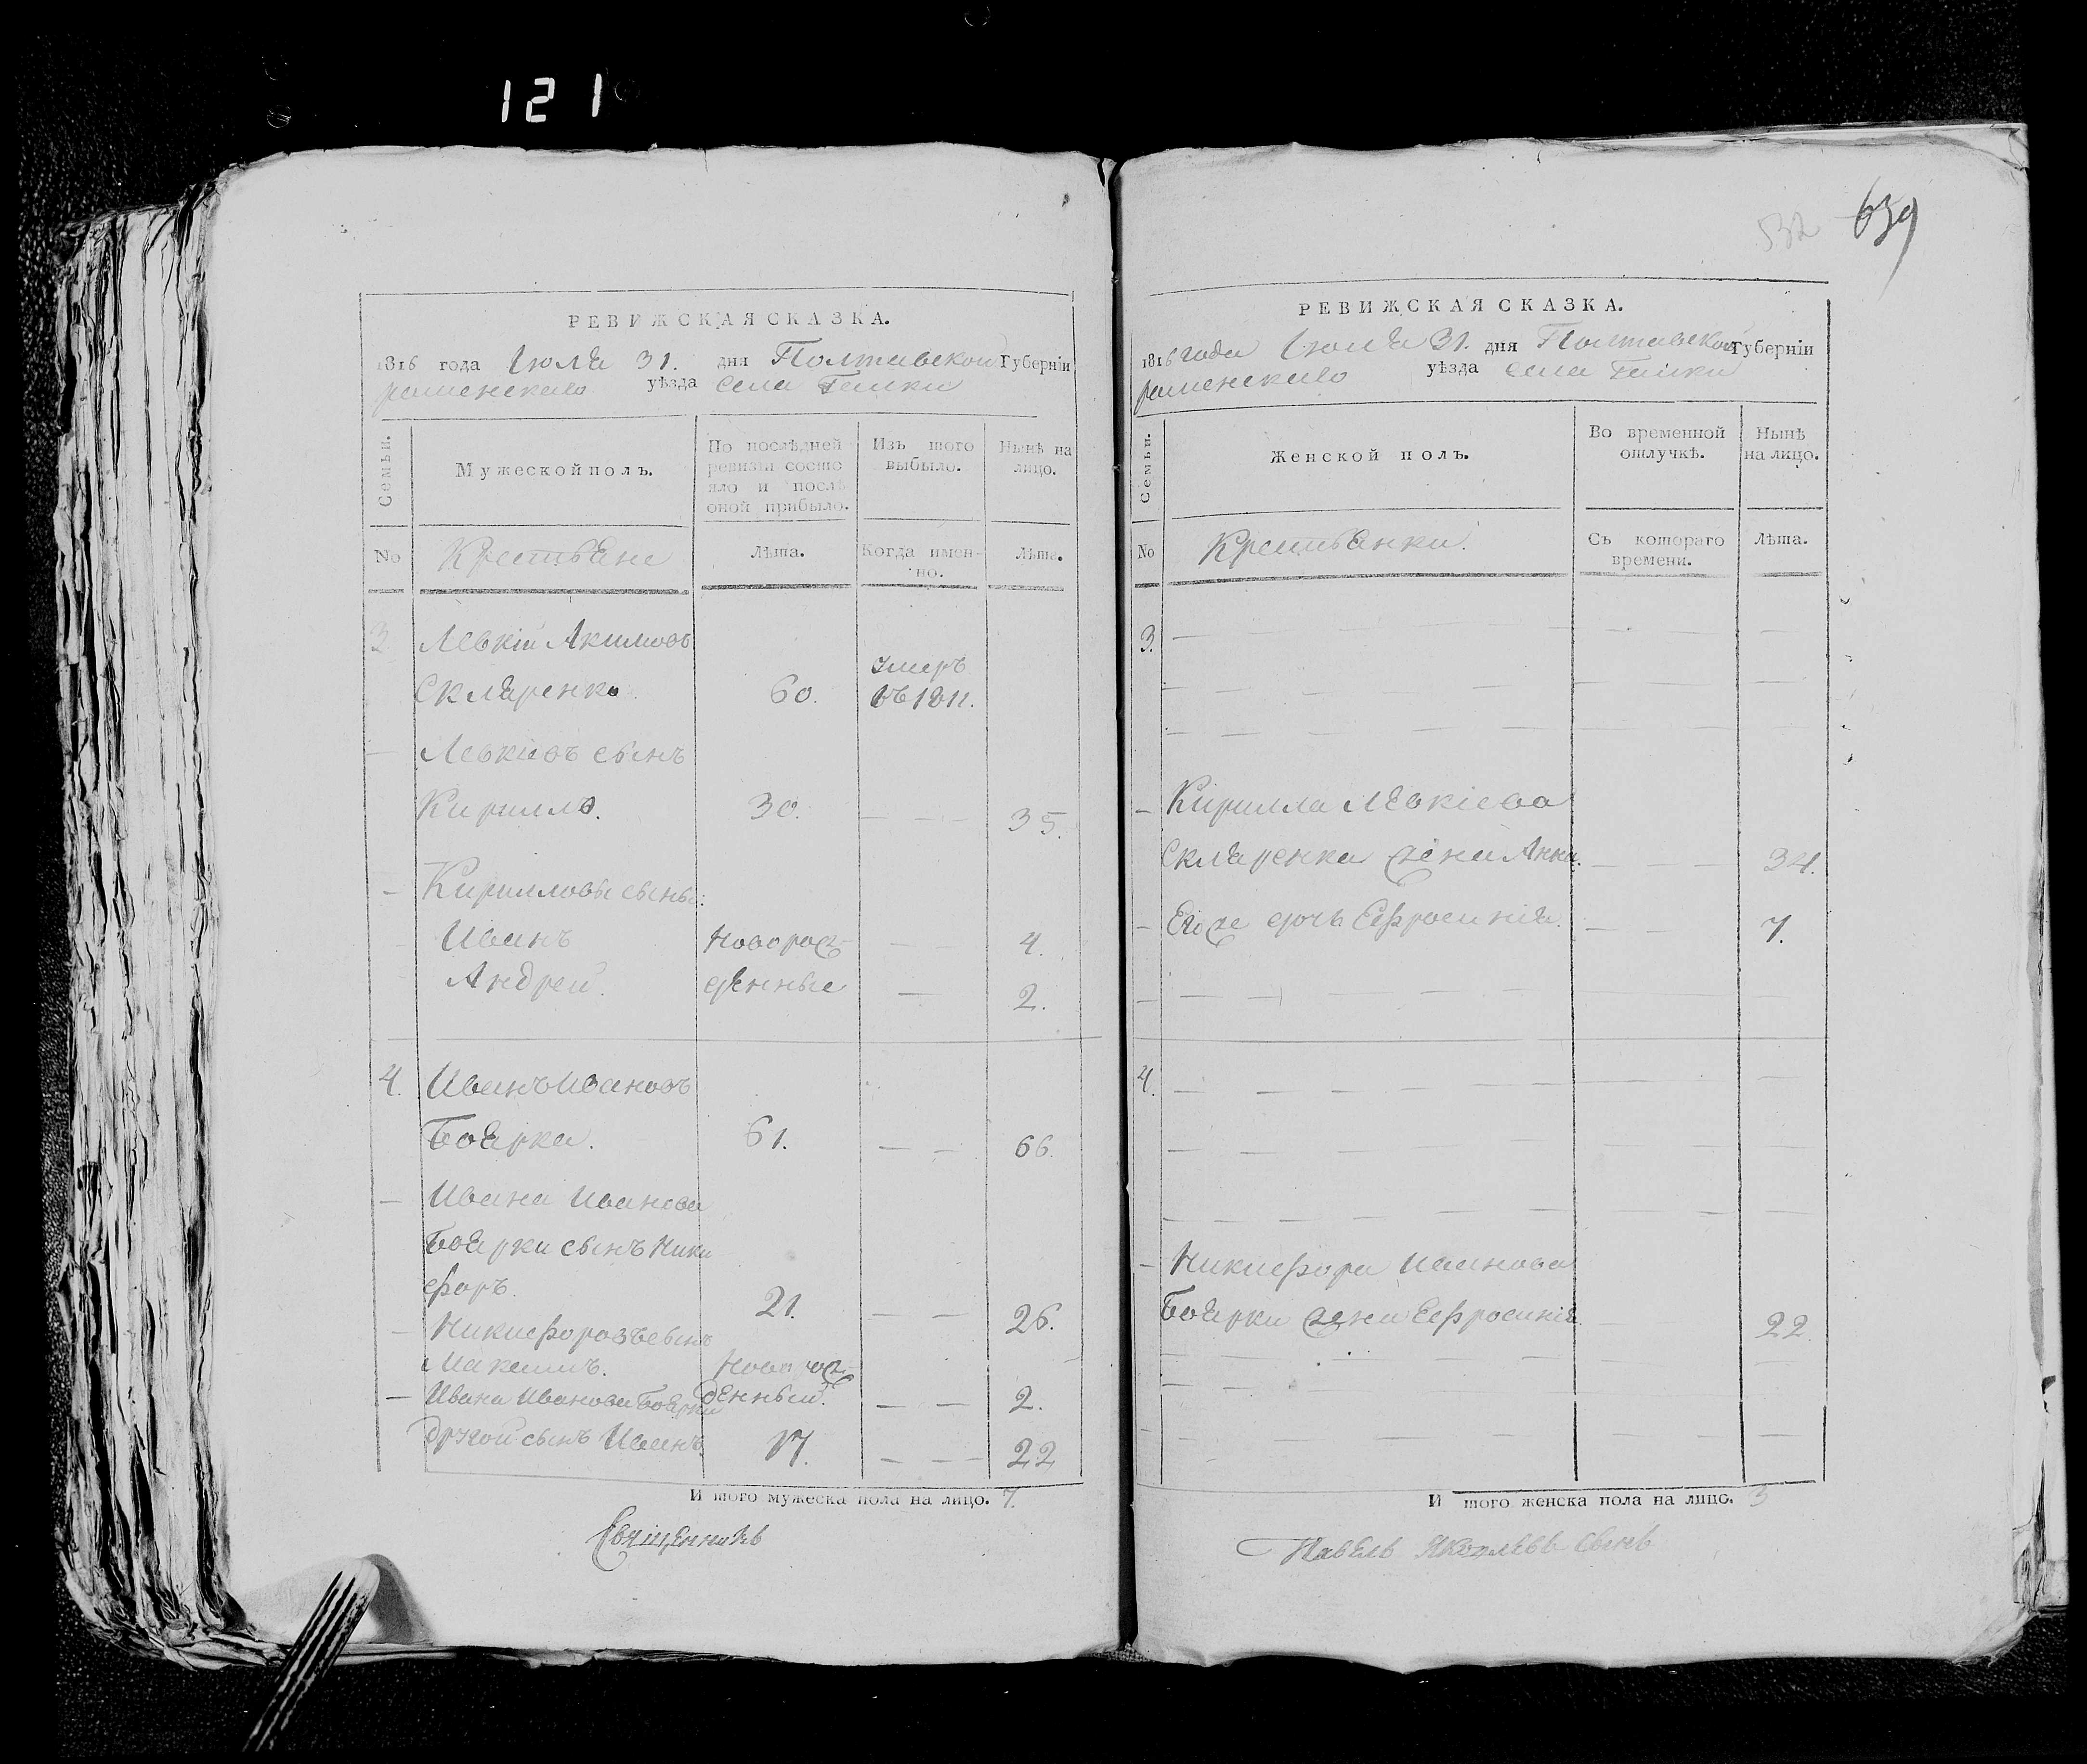 121
532 639
РЕВИЖСКАЯ СКАЗКА.
1816 года Іюля 31. дня Полтавской Губерніи
роменскаго уѣзда села Гамки
Семьи. Мужеской полъ. По послѣдней ревизіи состояло и послѣ оной прибыло. Изъ того выбыло. Нынѣ на лицо.
No Крестьяне Лѣта. Когда именно. Лѣта.
3 Левкій Акимовъ
Скляренко 60. умеръ въ 1811.
— Левкіевъ сынъ
Кириллъ. 30. — — — 35.
— Кирилловы сыны:
Иванъ Новорож- — — 4.
Андрей. денные — 2.
4. Иванъ Ивановъ
Боярка. 61. — — 66.
— Ивана Иванова
Боярки сынъ Ники
форъ. 21. — — 26.
— Никифоровъ сынъ
Максимъ. Новорож-
денный. — — 2.
— Ивана Иванова Боярки
другой сынъ Иванъ 17. — — — 22
И того мужеска пола на лицо. 7.
Священникъ
РЕВИЖСКАЯ СКАЗКА.
1816 года Іюля 31. дня Полтавской Губерніи
роменскаго уѣзда села Гамки
Семьи. Женской полъ. Во временной отлучкѣ. Нынѣ на лицо.
No Крестьянки. Съ котораго времени. Лѣта.
3.
— Кирилла Левкіева
Скляренка жена Анна. — — — 34.
— Его же дочь Ефросинія. — — 7.
4.
— Никифора Иванова
Боярки жена Ефросинія — 22.
И того женска пола на лицо. 3
Павелъ Яковлевъ сынъ